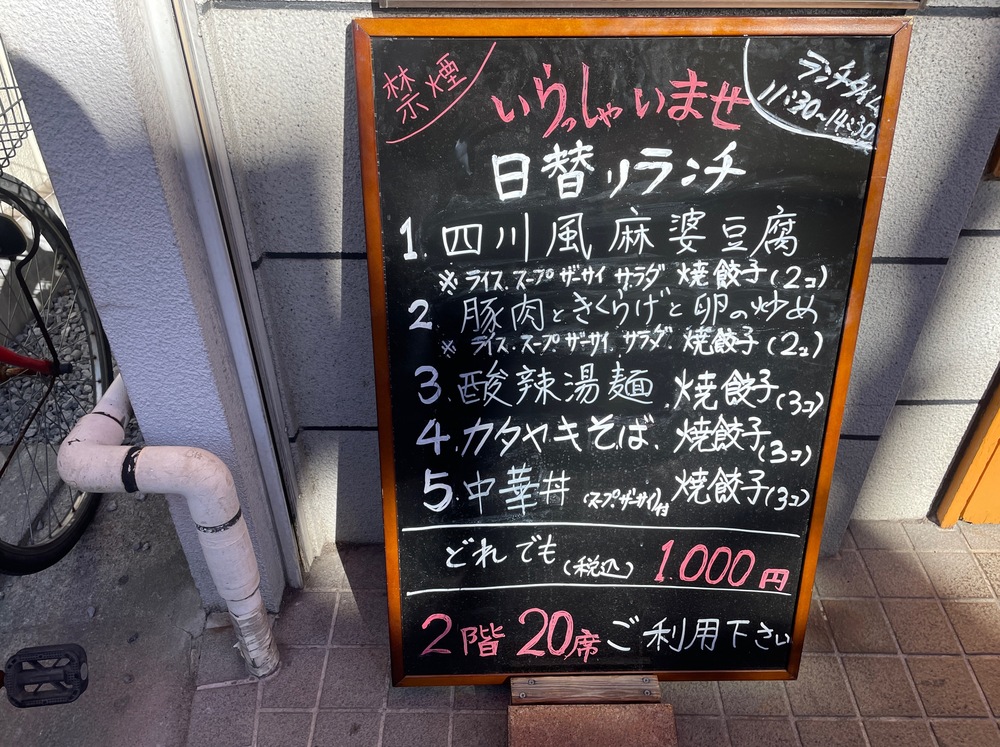 禁煙
いらっしゃいませ
ランチタイム
11:30~14:30
日替リランチ
1. 四川風麻婆豆腐
※ライス.スープ.ザーサイ.サラダ.焼餃子(2コ)
2 豚肉ときくらげと卵の炒め
※ライス.スープ.ザーサイ.サラダ.焼餃子(2コ)
3.酸辣湯麺.焼餃子(3コ)
4.カタヤキそば.焼餃子(3コ)
5.中華丼(スープ.ザーサイ)付 焼餃子(3コ)
どれでも(税込) 1.000円
2階20席ご利用下さい